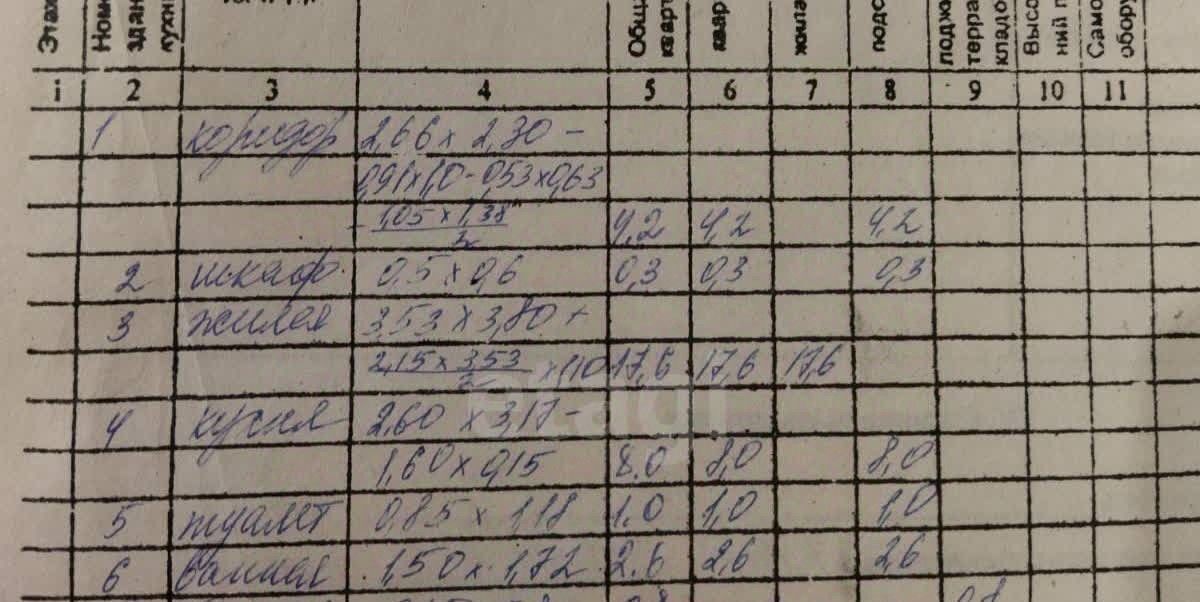 Этаж Номе здани кухни Обща кварт кварт жила подс поджи терра кладо Высо ний п Само обору
1 2 3 4 5 6 7 8 9 10 11
1 коридор 2,66 x 2,30 -
0,91 x 1,0 - 0,53 x 0,63
- 1,05 x 1,38 / 2 4,2 4,2 4,2
2 шкаф 0,5 x 0,6 0,3 0,3 0,3
3 жилая 3,53 x 3,80 +
2,15 x 3,53 / 2 x 1,10 17,6 17,6 17,6
4 кухня 2,60 x 3,17 -
1,60 x 0,15 8.0 8,0 8,0
5 туалет 0,85 x 1,18 1.0 1,0 1,0
6 ванная 1,50 x 1,72 2.6 2,6 2,6
etagi